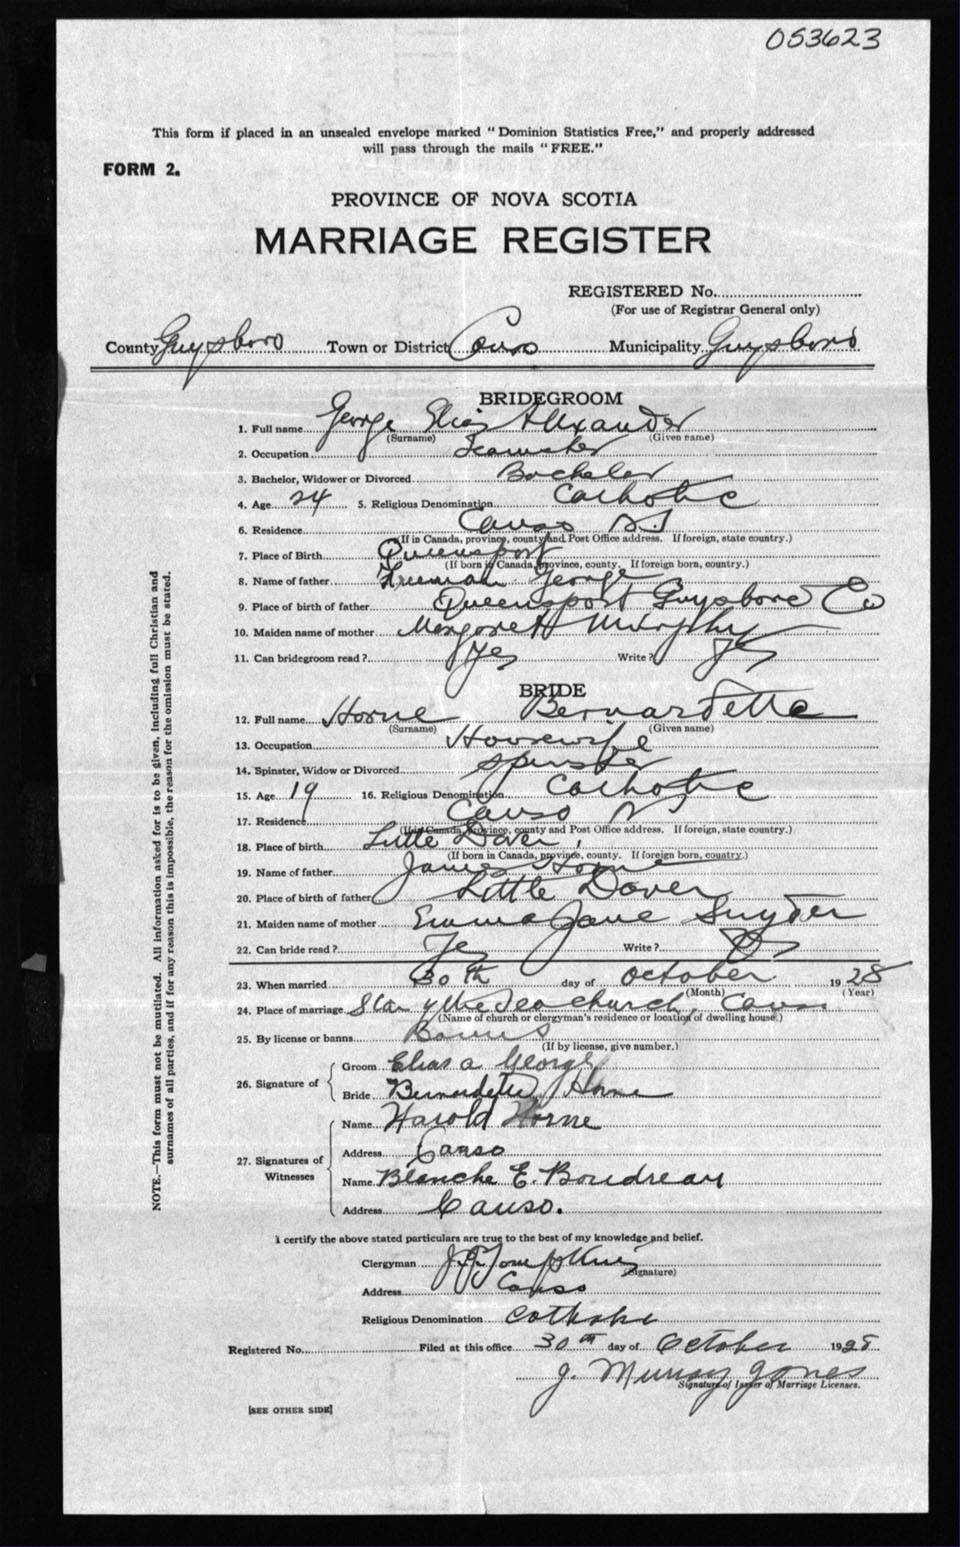 053623
This form if placed in an unsealed envelope marked "Dominion Statistics Free," and properly addressed
will pass through the mails "FREE."
FORM 2.
PROVINCE OF NOVA SCOTIA
MARRIAGE REGISTER
REGISTERED No.
(For use of Registrar General only)
County Guysboro Town or District Canso Municipality Guysboro
BRIDEGROOM
1. Full name George Elias Alexander
(Surname) (Given name)
2. Occupation Teamster
3. Bachelor, Widower or Divorced Bachelor
4. Age 24 5. Religious Denomination Catholic
6. Residence Canso NS
(If in Canada, province, county and Post Office address. If foreign, state country.)
7. Place of Birth Queensport
(If born in Canada, province, county. If foreign born, country.)
8. Name of father Freeman George
9. Place of birth of father Queensport Guysboro Co
10. Maiden name of mother Margaret Murphy
11. Can bridegroom read? Yes Write? Yes
BRIDE
12. Full name Horne Bernardette
(Surname) (Given name)
13. Occupation Housewife
14. Spinster, Widow or Divorced Spinster
15. Age 19 16. Religious Denomination Catholic
17. Residence Canso NS
(If in Canada, province, county and Post Office address. If foreign, state country.)
18. Place of birth Little Dover,
(If born in Canada, province, county. If foreign born, country.)
19. Name of father James Horne
20. Place of birth of father Little Dover
21. Maiden name of mother Emma Jane Snyder
22. Can bride read? Yes Write? Yes
23. When married 30th day of October 1928
(Month) (Year)
24. Place of marriage Star of the Sea church, Canso
(Name of church or clergyman's residence or location of dwelling house.)
25. By license or banns Banns
(If by license, give number.)
26. Signature of
Groom Elias A George
Bride Bernardette Horne
27. Signatures of Witnesses
Name Harold Horne
Address Canso
Name Blanche E. Boudreau
Address Canso.
I certify the above stated particulars are true to the best of my knowledge and belief.
Clergyman J.J. Tompkins
(Signature)
Address Canso
Religious Denomination Catholic
Registered No. Filed at this office 30th day of October 1928
J. Murray Jones
Signature of Issuer of Marriage Licenses.
[SEE OTHER SIDE]
NOTE.—This form must not be mutilated. All information asked for is to be given, including full Christian and
surnames of all parties, and if for any reason this is impossible, the reason for the omission must be stated.